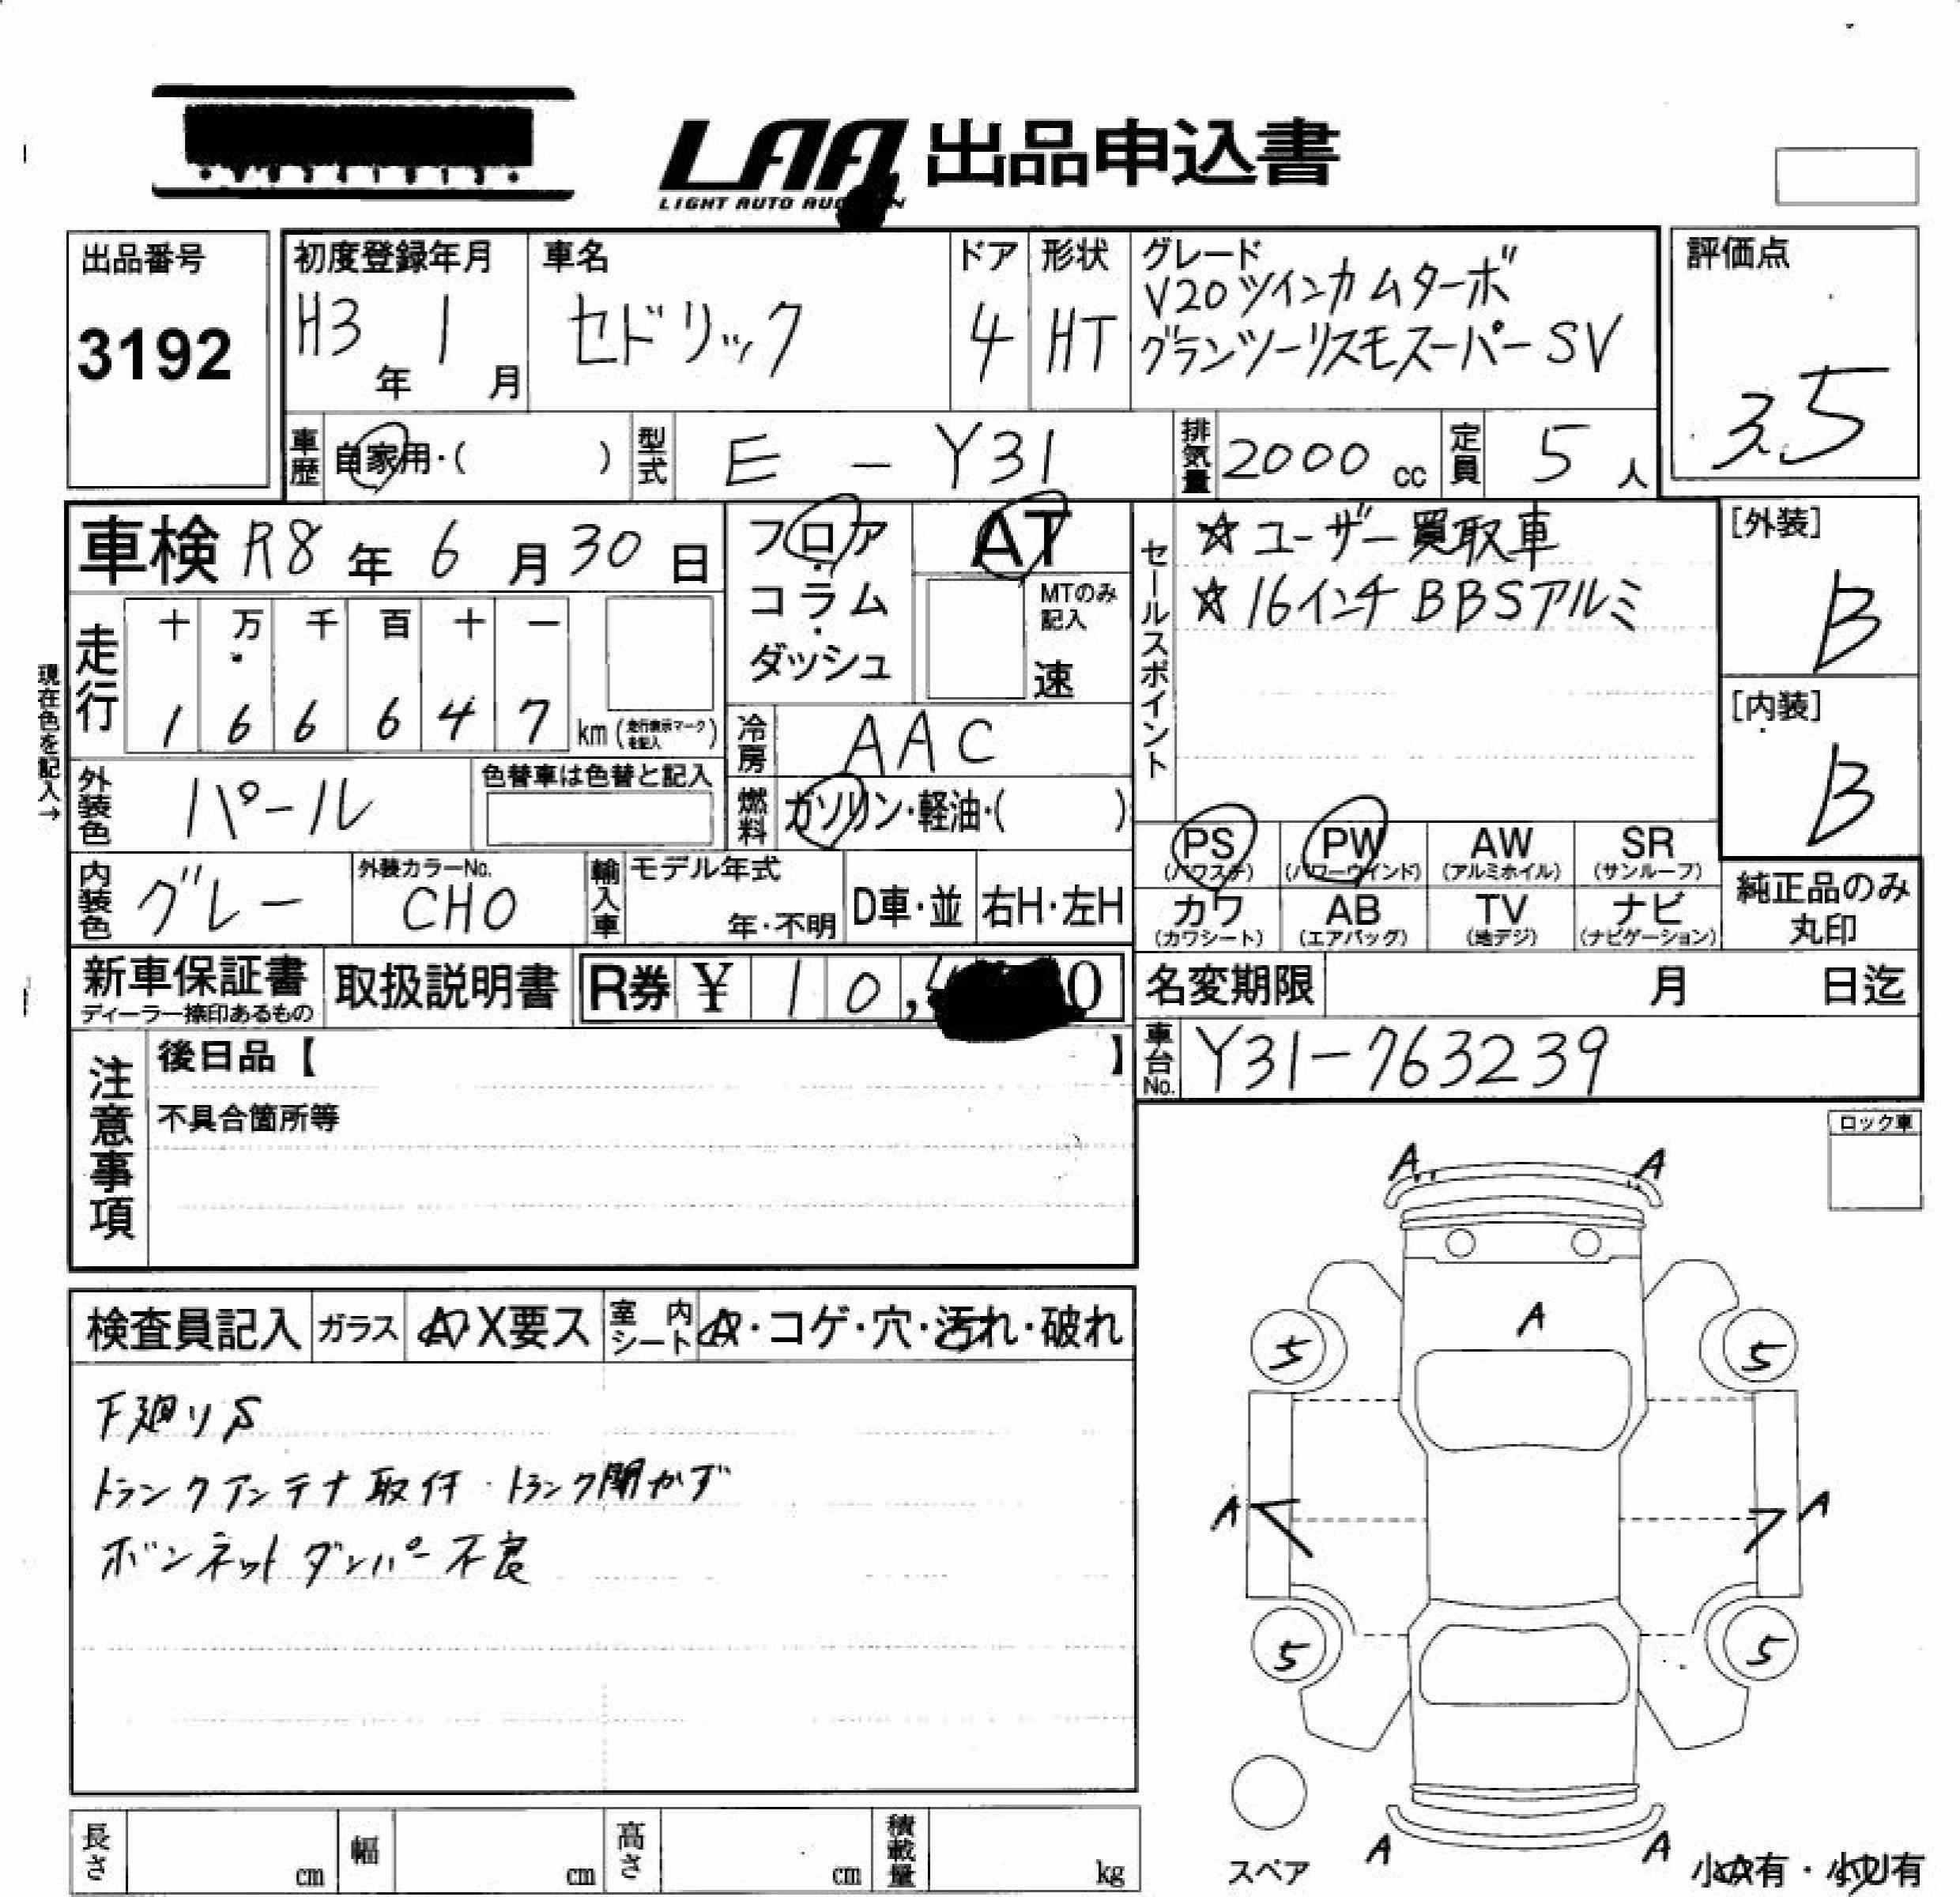 LAA 出品申込書
LIGHT AUTO AUC
出品番号
3192
初度登録年月
H3年 1月
車名
セドリック
ドア
4
形状
HT
グレード
V20ツインカムターボ
グランツーリスモスーパーSV
評価点
3.5
車歴 自家用・( )
型式 E - Y31
排気量 2000 cc
定員 5 人
車検 R8年 6月 30日
フロア・コラム・ダッシュ
AT
MTのみ記入
速
セールスポイント
☆ユーザー買取車
☆16インチBBSアルミ
[外装]
B
[内装]
B
現在色を記入→
走行
十 万 千 百 十 一
1 6 6 6 4 7 km (走行表示マークを記入)
冷房 AAC
外装色 パール
色替車は色替と記入
燃料 ガソリン・軽油・( )
PS (パワステ)
PW (パワーウインド)
AW (アルミホイル)
SR (サンルーフ)
カワ (カワシート)
AB (エアバッグ)
TV (地デジ)
ナビ (ナビゲーション)
純正品のみ
丸印
内装色 グレー
外装カラーNo.
CH0
輸入車 モデル年式
年・不明
D車・並
右H・左H
新車保証書
ディーラー捺印あるもの
取扱説明書
R券 ¥ 1 0 , 0
名変期限 月 日迄
車台No. Y31-763239
注意事項
後日品【 】
不具合箇所等
ロック車
検査員記入
ガラス A・X要ス
室内シート A・コゲ・穴・汚れ・破れ
下廻りS
トランクアンテナ取付・トランク開かず
ボンネットダンパー不良
A A
A
5 5
A A
5 5
A A
スペア
小A有・小U有
長さ cm
幅 cm
高さ cm
積載量 kg